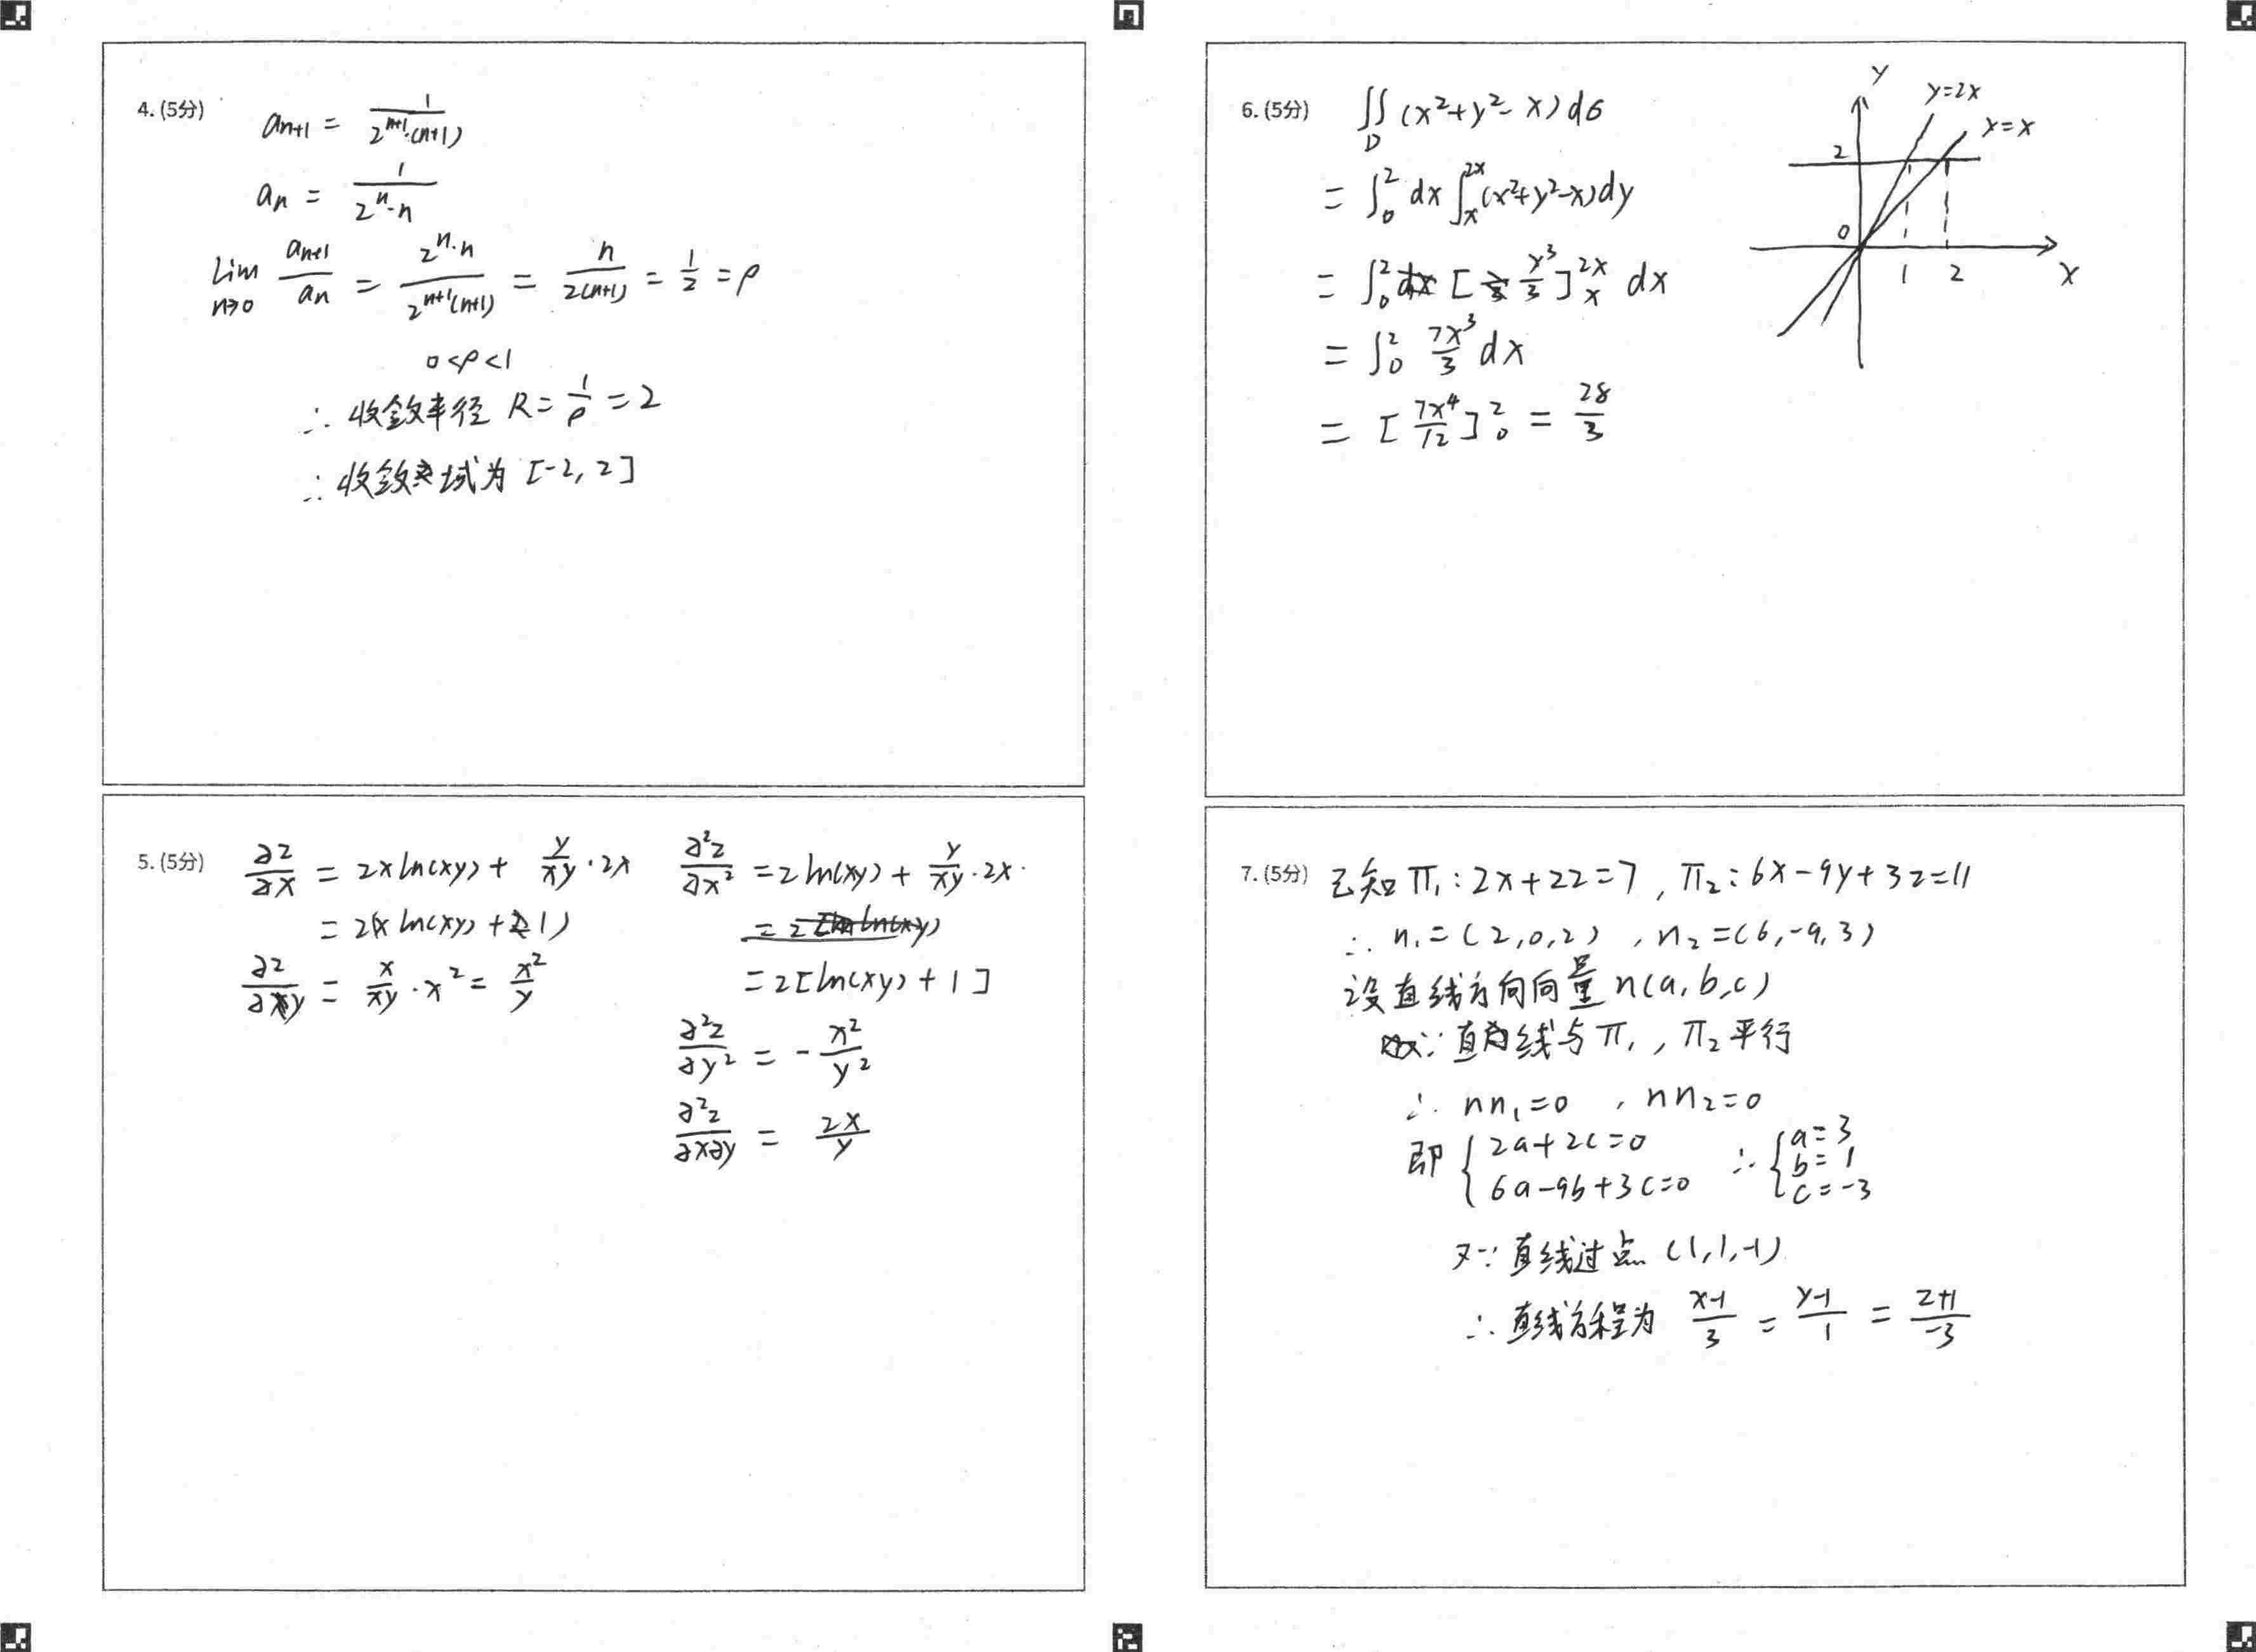 4.(5分)
aₙ₊₁ = 1/(2ⁿ⁺¹·(n+1))
aₙ = 1/(2ⁿ·n)
lim n→0 aₙ₊₁/aₙ = 2ⁿ·n/(2ⁿ⁺¹(n+1)) = n/(2(n+1)) = 1/2 = ρ
0<ρ<1
∴ 收敛半径 R = 1/ρ = 2
∴ 收敛域为 [-2, 2]
5.(5分)
∂z/∂x = 2x ln(xy) + y/xy · 2x
= 2(x ln(xy) + 1)
∂z/∂y = x/xy · x² = x²/y
∂²z/∂x² = 2 ln(xy) + y/xy · 2x ·
= 2[ln(xy) + 1]
∂²z/∂y² = - x²/y²
∂²z/∂x∂y = 2x/y
6.(5分)
∬_D (x²+y²-x)dσ
= ∫₀² dx ∫ₓ²ˣ (x²+y²-x)dy
= ∫₀² [y³/3]ₓ²ˣ dx
= ∫₀² 7x³/3 dx
= [7x⁴/12]₀² = 28/3
y
y=2x
y=x
2
0
1
2
x
7.(5分)
已知 π₁: 2x+2z=7, π₂: 6x-9y+3z=11
∴ n₁=(2,0,2), n₂=(6,-9,3)
设直线方向向量 n(a,b,c)
∵ 直线与 π₁, π₂ 平行
∴ nn₁=0, nn₂=0
即 { 2a+2c=0 6a-9b+3c=0 ∴ { a=3 b=1 c=-3
又∵ 直线过点 (1,1,-1)
∴ 直线方程为 (x-1)/3 = (y-1)/1 = (z+1)/-3